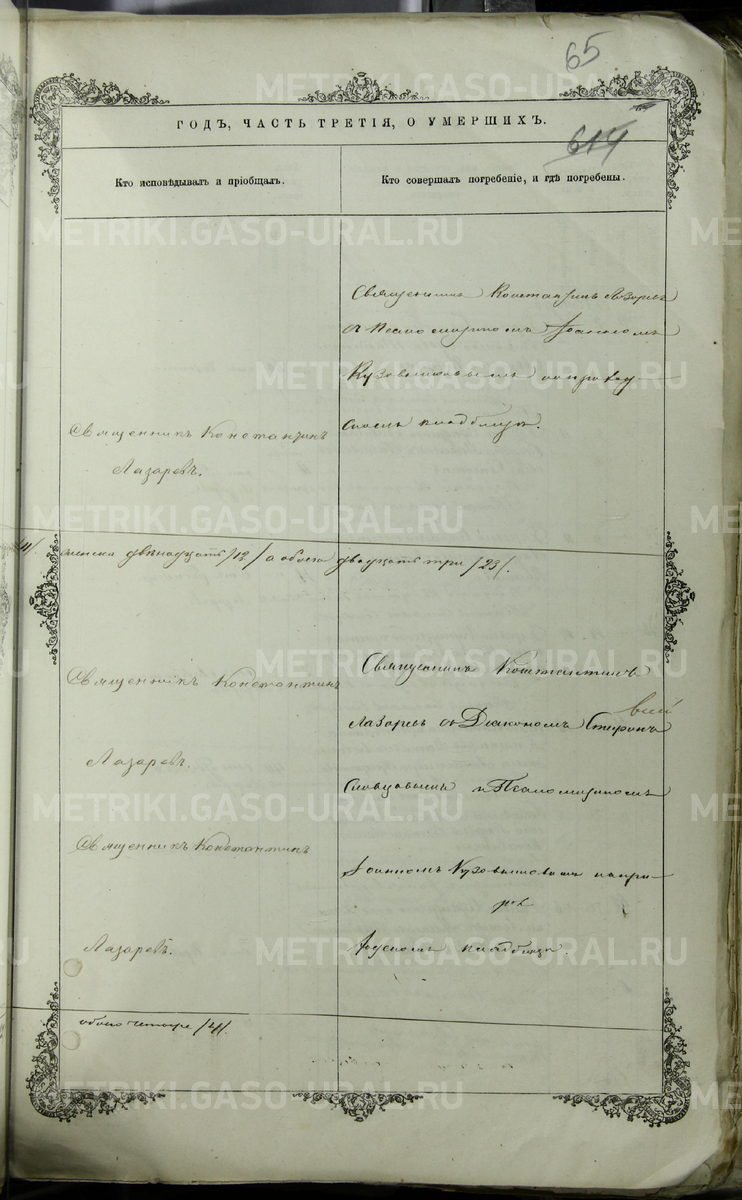 65
614
ГОДЪ, ЧАСТЬ ТРЕТІЯ, О УМЕРШИХЪ.
Кто исповѣдывалъ и пріобщалъ.
Кто совершалъ погребеніе, и гдѣ погребены.
Священникъ Константинъ Лазаревъ
съ Псаломщикомъ Іоанномъ
Кузовниковымъ на приход
скомъ кладбищѣ.
Священникъ Константинъ
Лазаревъ.
женска двѣнадцать /12/ а обоего двадцать три /23/.
Священникъ Константинъ
Лазаревъ.
Священникъ Константинъ
Лазаревъ съ Діакономъ Стефан
Словцовымъ и Псаломщикомъ
Іоанномъ Кузовниковымъ на при-
ходскомъ кладбищѣ.
Священникъ Константинъ
Лазаревъ.
обоего четыре /4/.
METRIKI.GASO-URAL.RU